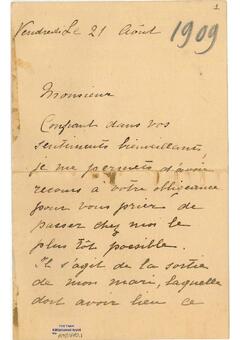 1
Vendredi Le 21 Août 1909
Monsieur
Confiant dans vos
sentiments bienveillants,
je me permets d'avoir
recours à votre obligeance
pour vous prier de
passer chez moi le
plus tôt possible.
Il s'agit de la sortie
de mon mari, laquelle
doit avoir lieu ce